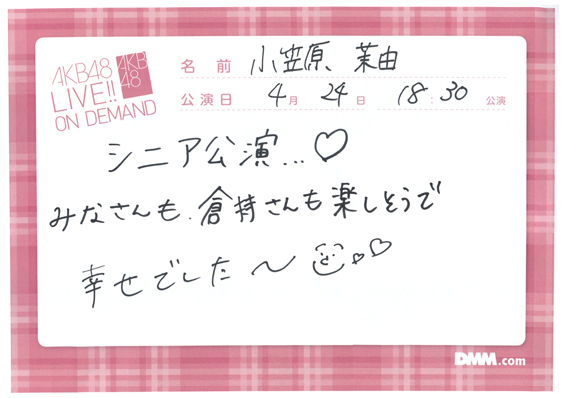 AKB48
LIVE!!
ON DEMAND
AKB
48
名前 小笠原 茉由
公演日 4月 24日 18:30 公演
シニア公演...♡
みなさんも、倉持さんも楽しそうで
幸せでした〜
DMM.com